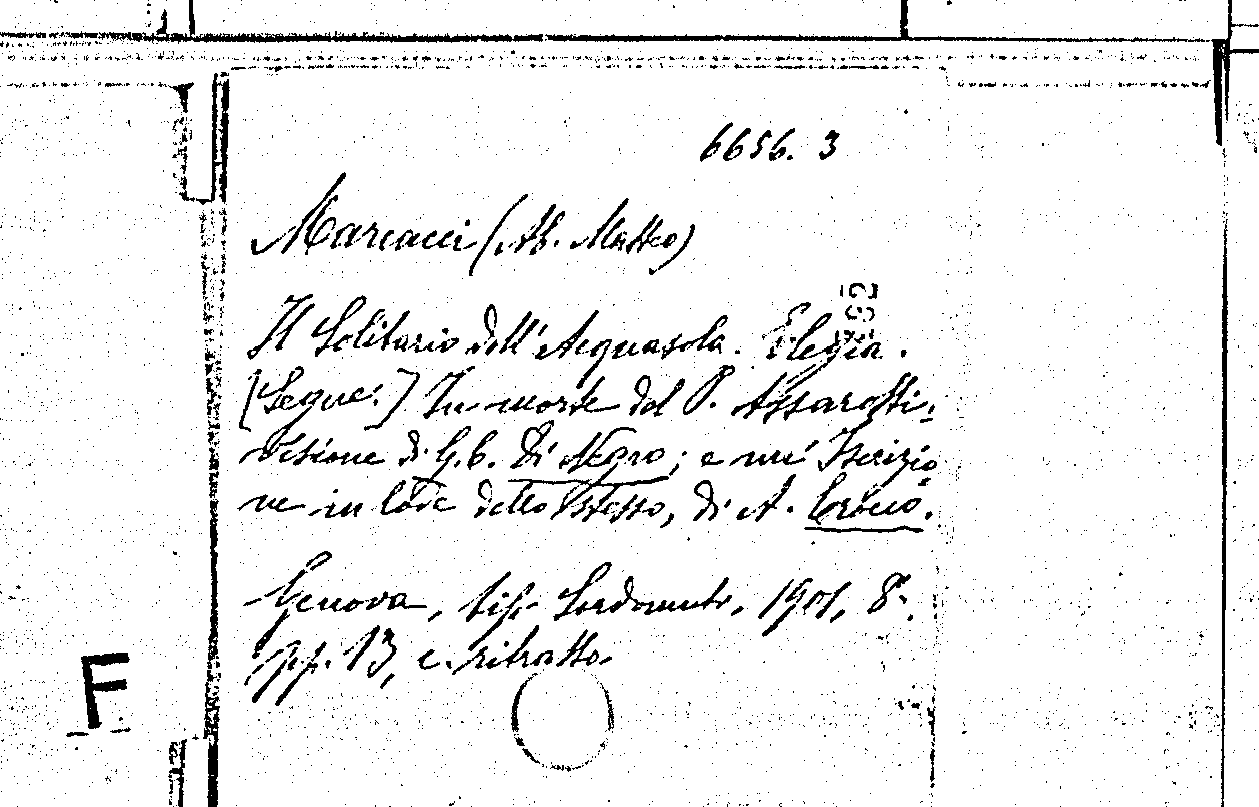 6656. 3
Marcacci (Ab. Matteo)
Il Solitario dell'Acquasola. Elegia.
[Segue:] In morte del P. Assarotti:
Visione di G.B. Di Negro; e un' Iscrizio
ne in lode dello stesso, di A. Crocco.
Genova, tip. Sordomuti, 1901, 8°.
pp. 13, c. ritratto.
F